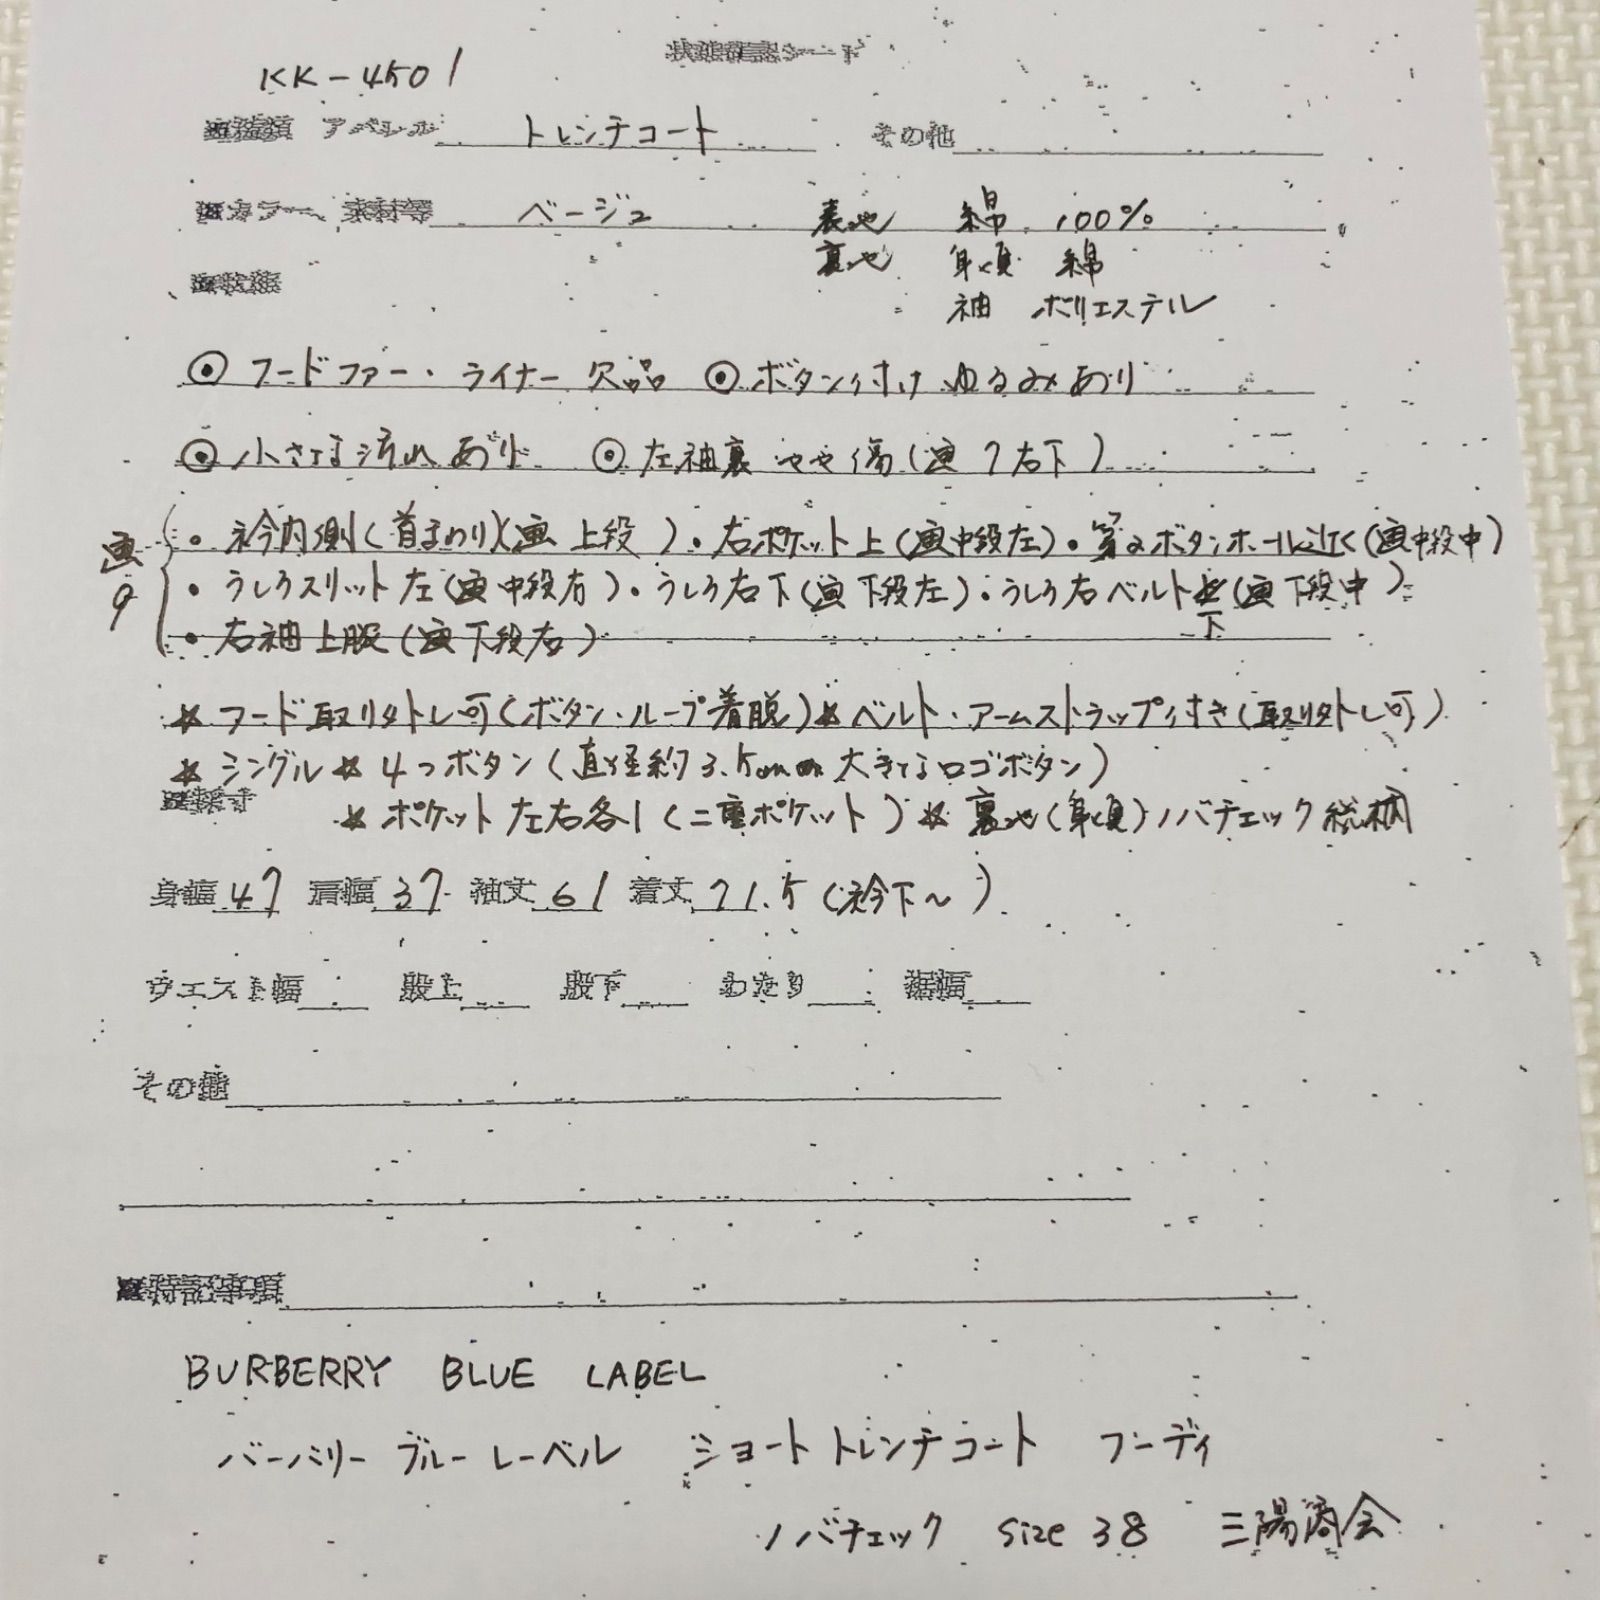 状態確認シート
KK-4501
■種類 アパレル トレンチコート その他
■カラー、素材等 ベージュ 表地 綿 100%
裏地 身頃 綿
袖 ポリエステル
■状態
◉フードファー・ライナー欠品 ◉ボタン付けゆるみあり
◉小さな汚れあり ◉左袖裏 やや傷(画7右下)
画9
・衿内側(首まわり)(画上段)・右ポケット上(画中段左)・第2ボタンホール近く(画中段中)
・うしろスリット左(画中段右)・うしろ右下(画下段左)・うしろ右ベルト下(画下段中)
・右袖上腕(画下段右)
☆フード取り外し可(ボタン・ループ着脱)☆ベルト・アームストラップ付き(取り外し可)
☆シングル☆4つボタン(直径約3.5cmの大きなロゴボタン)
■採寸
☆ポケット左右各1(二重ポケット)☆裏地(身頃)ノバチェック総柄
身幅47 肩幅37 袖丈61 着丈71.5(衿下～)
ウエスト幅 股上 股下 わたり 裾幅
その他
■特記事項
BURBERRY BLUE LABEL
バーバリー ブルーレーベル ショートトレンチコート フーディ
ノバチェック size 38 三陽商会